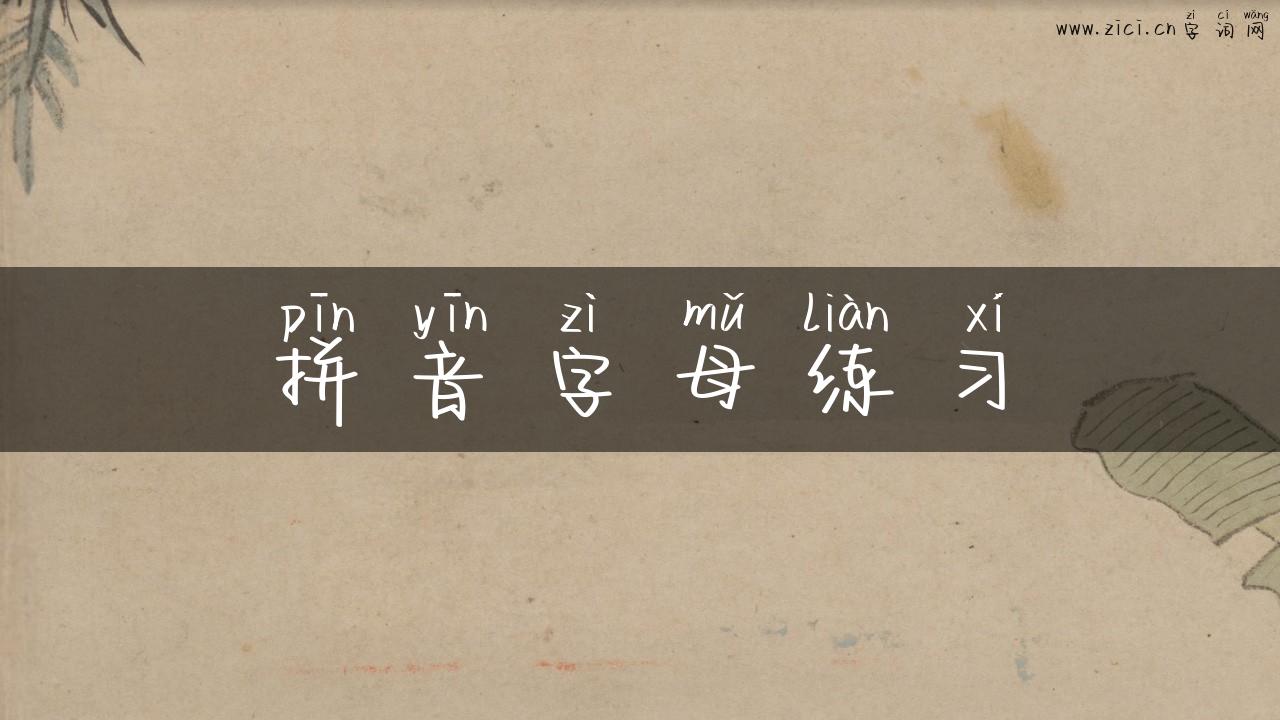 zì cí wǎng
www.zici.cn 字词网
pīn yīn zì mǔ liàn xí
拼音字母练习